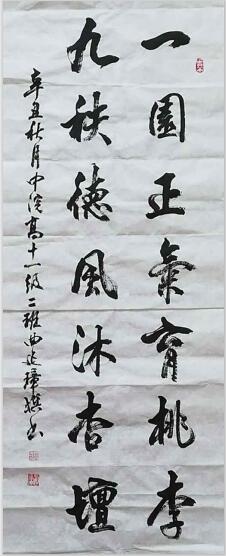 一園正氣育桃李
九秩德風沐杏壇
辛丑秋月中浣高十一級二班曲延